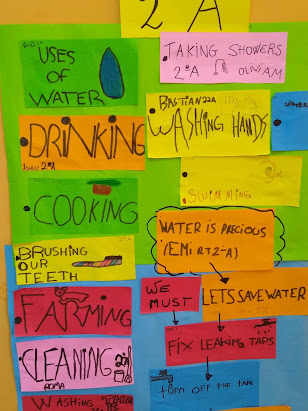 2 A
USES
OF
WATER
TAKING SHOWERS
2ºA OLIVIA M
DRINKING
2ºA
BASTIAN 22A
WASHING HANDS
WATER
COOKING
SWIMMING
WATER IS PRECIOUS
(EMi RT2-A)
BRUSHING
OUR
TEETH
FARMING
WE
MUST
LETS SAVE WATER
FIX LEAKING TAPS
CLEANING
TURN OFF THE TAPS
WASHING